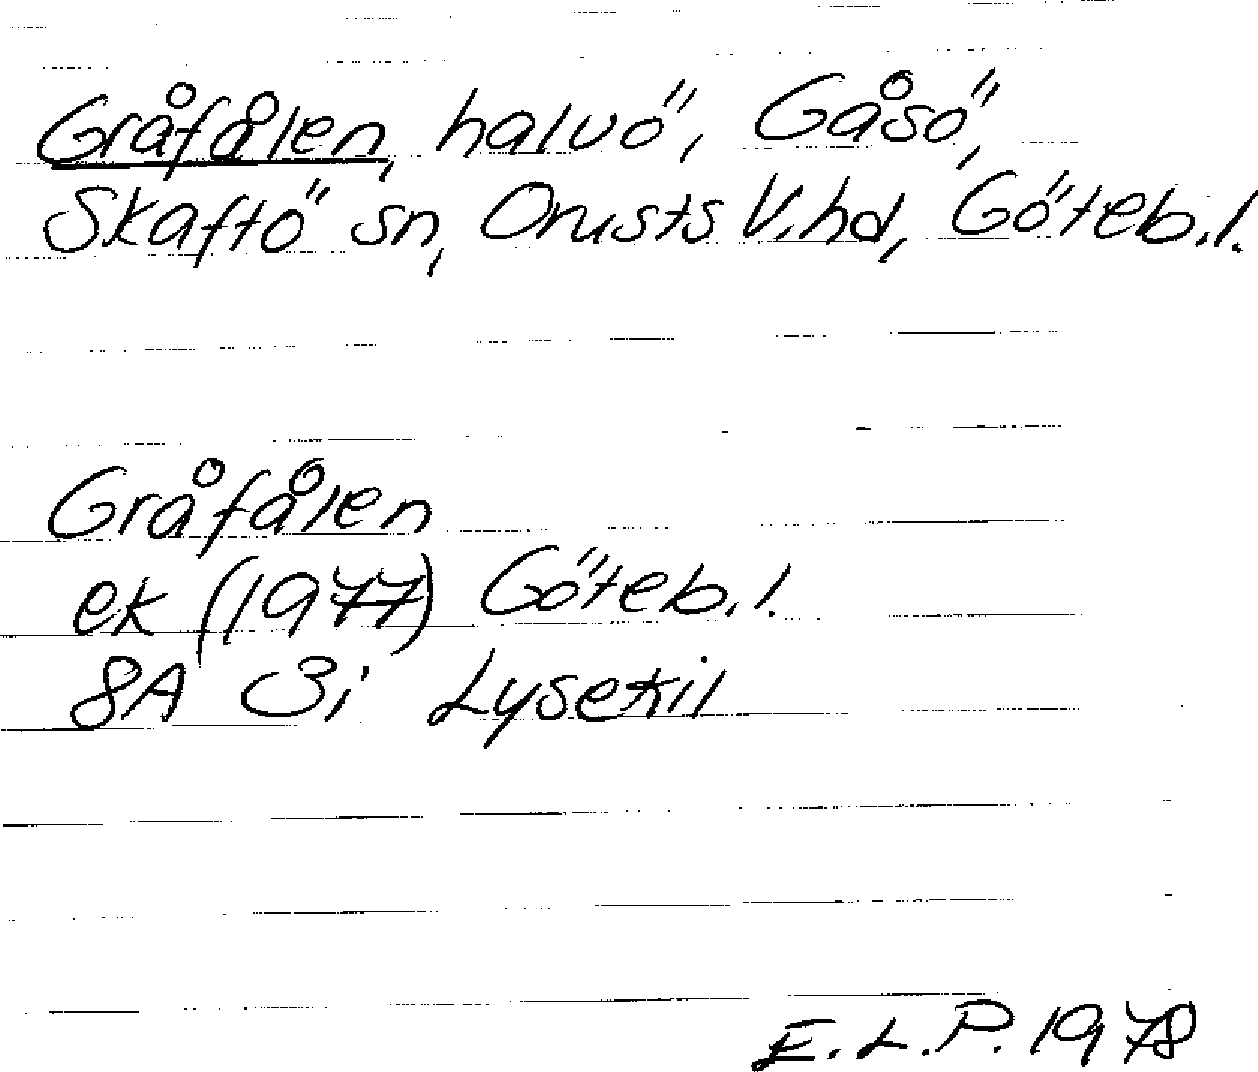 Gråfålen, halvö, Gåsö,
Skaftö sn, Orusts V.hd, Göteb.l.
Gråfålen
ek (1977) Göteb.l.
8A 3i Lysekil
E.L.P. 1978